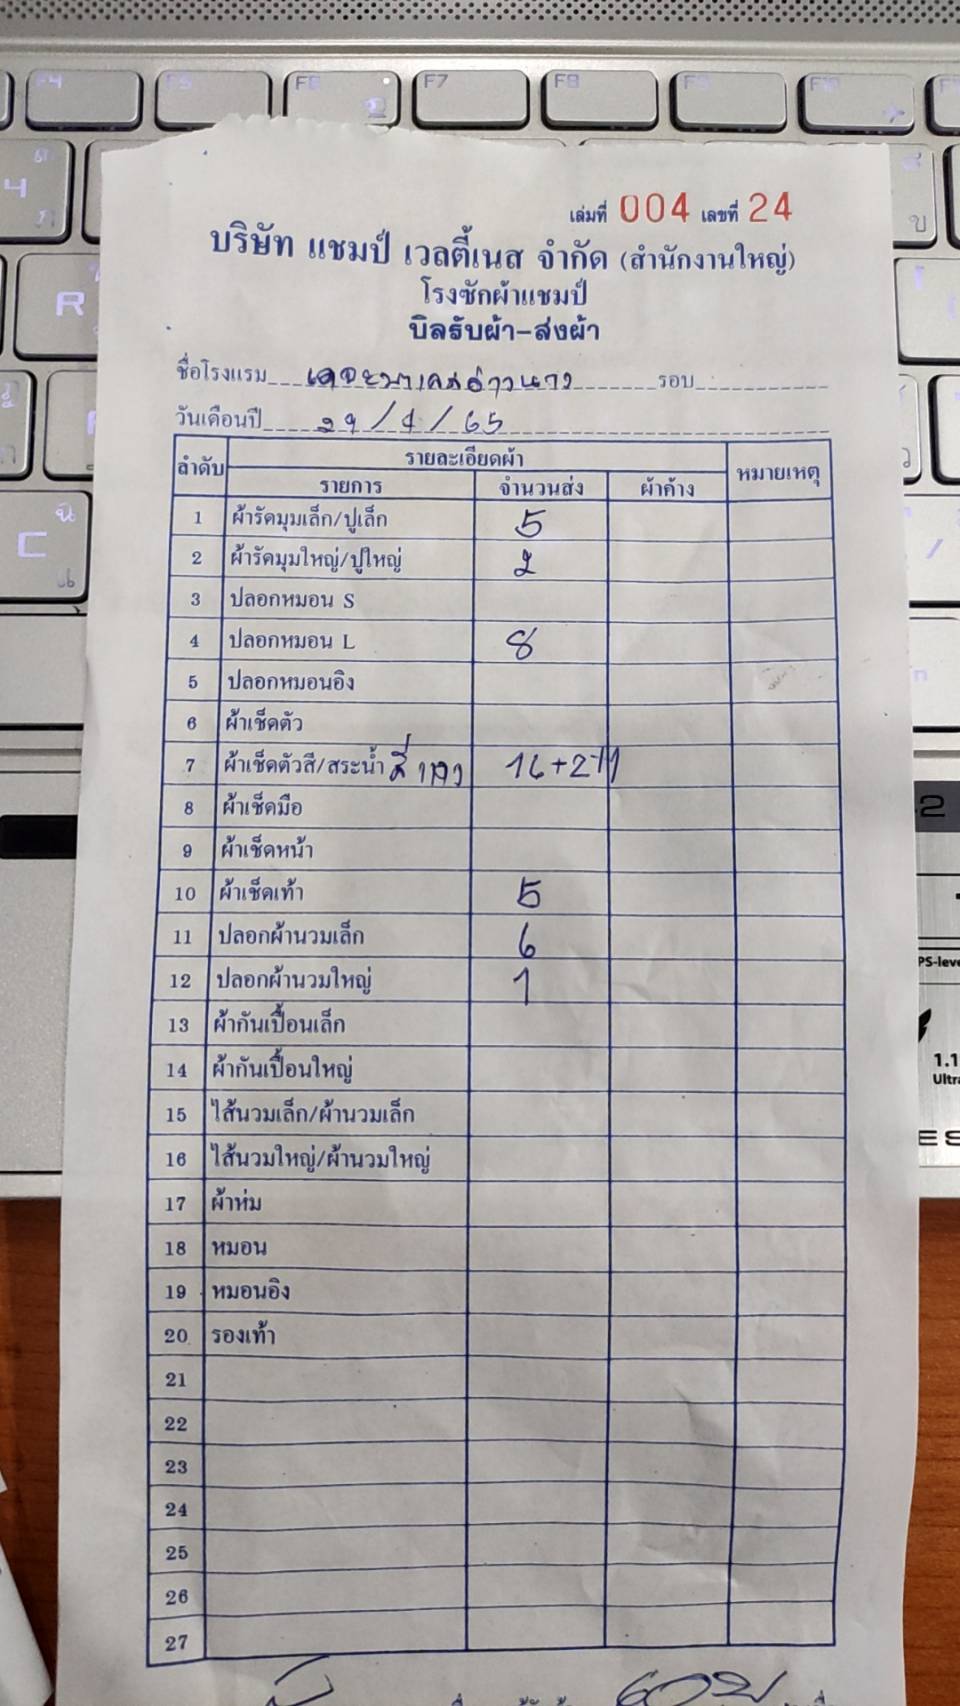 เล่มที่ 004 เลขที่ 24
บริษัท แชมป์ เวลตี้เนส จำกัด (สำนักงานใหญ่)
โรงซักผ้าแชมป์
บิลรับผ้า-ส่งผ้า
ชื่อโรงแรม รอบ
วันเดือนปี 29/4/65
ลำดับ รายละเอียดผ้า หมายเหตุ
รายการ จำนวนส่ง ผ้าค้าง
1 ผ้ารัดมุมเล็ก/ปูเล็ก 5
2 ผ้ารัดมุมใหญ่/ปูใหญ่ 2
3 ปลอกหมอน S
4 ปลอกหมอน L 8
5 ปลอกหมอนอิง
6 ผ้าเช็ดตัว
7 ผ้าเช็ดตัวสี/สระน้ำ
8 ผ้าเช็ดมือ
9 ผ้าเช็ดหน้า
10 ผ้าเช็ดเท้า 5
11 ปลอกผ้านวมเล็ก 6
12 ปลอกผ้านวมใหญ่ 1
13 ผ้ากันเปื้อนเล็ก
14 ผ้ากันเปื้อนใหญ่
15 ไส้นวมเล็ก/ผ้านวมเล็ก
16 ไส้นวมใหญ่/ผ้านวมใหญ่
17 ผ้าห่ม
18 หมอน
19 หมอนอิง
20 รองเท้า
21
22
23
24
25
26
27